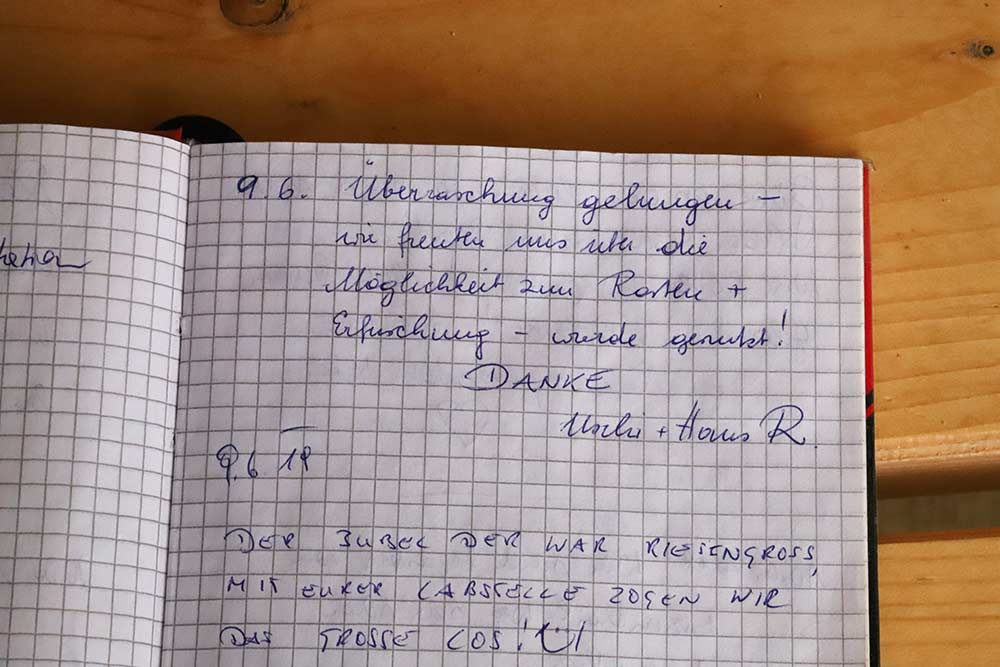 9.6. Überraschung gelungen –
wir freuten uns über die
Möglichkeit zum Rasten +
Erfrischung – wurde genutzt!
DANKE
Uschi + Hans R.
9.6 19
DER JUBEL DER WAR RIESENGROSS,
MIT EURER LABSTELLE ZOGEN WIR
DAS GROSSE LOS!